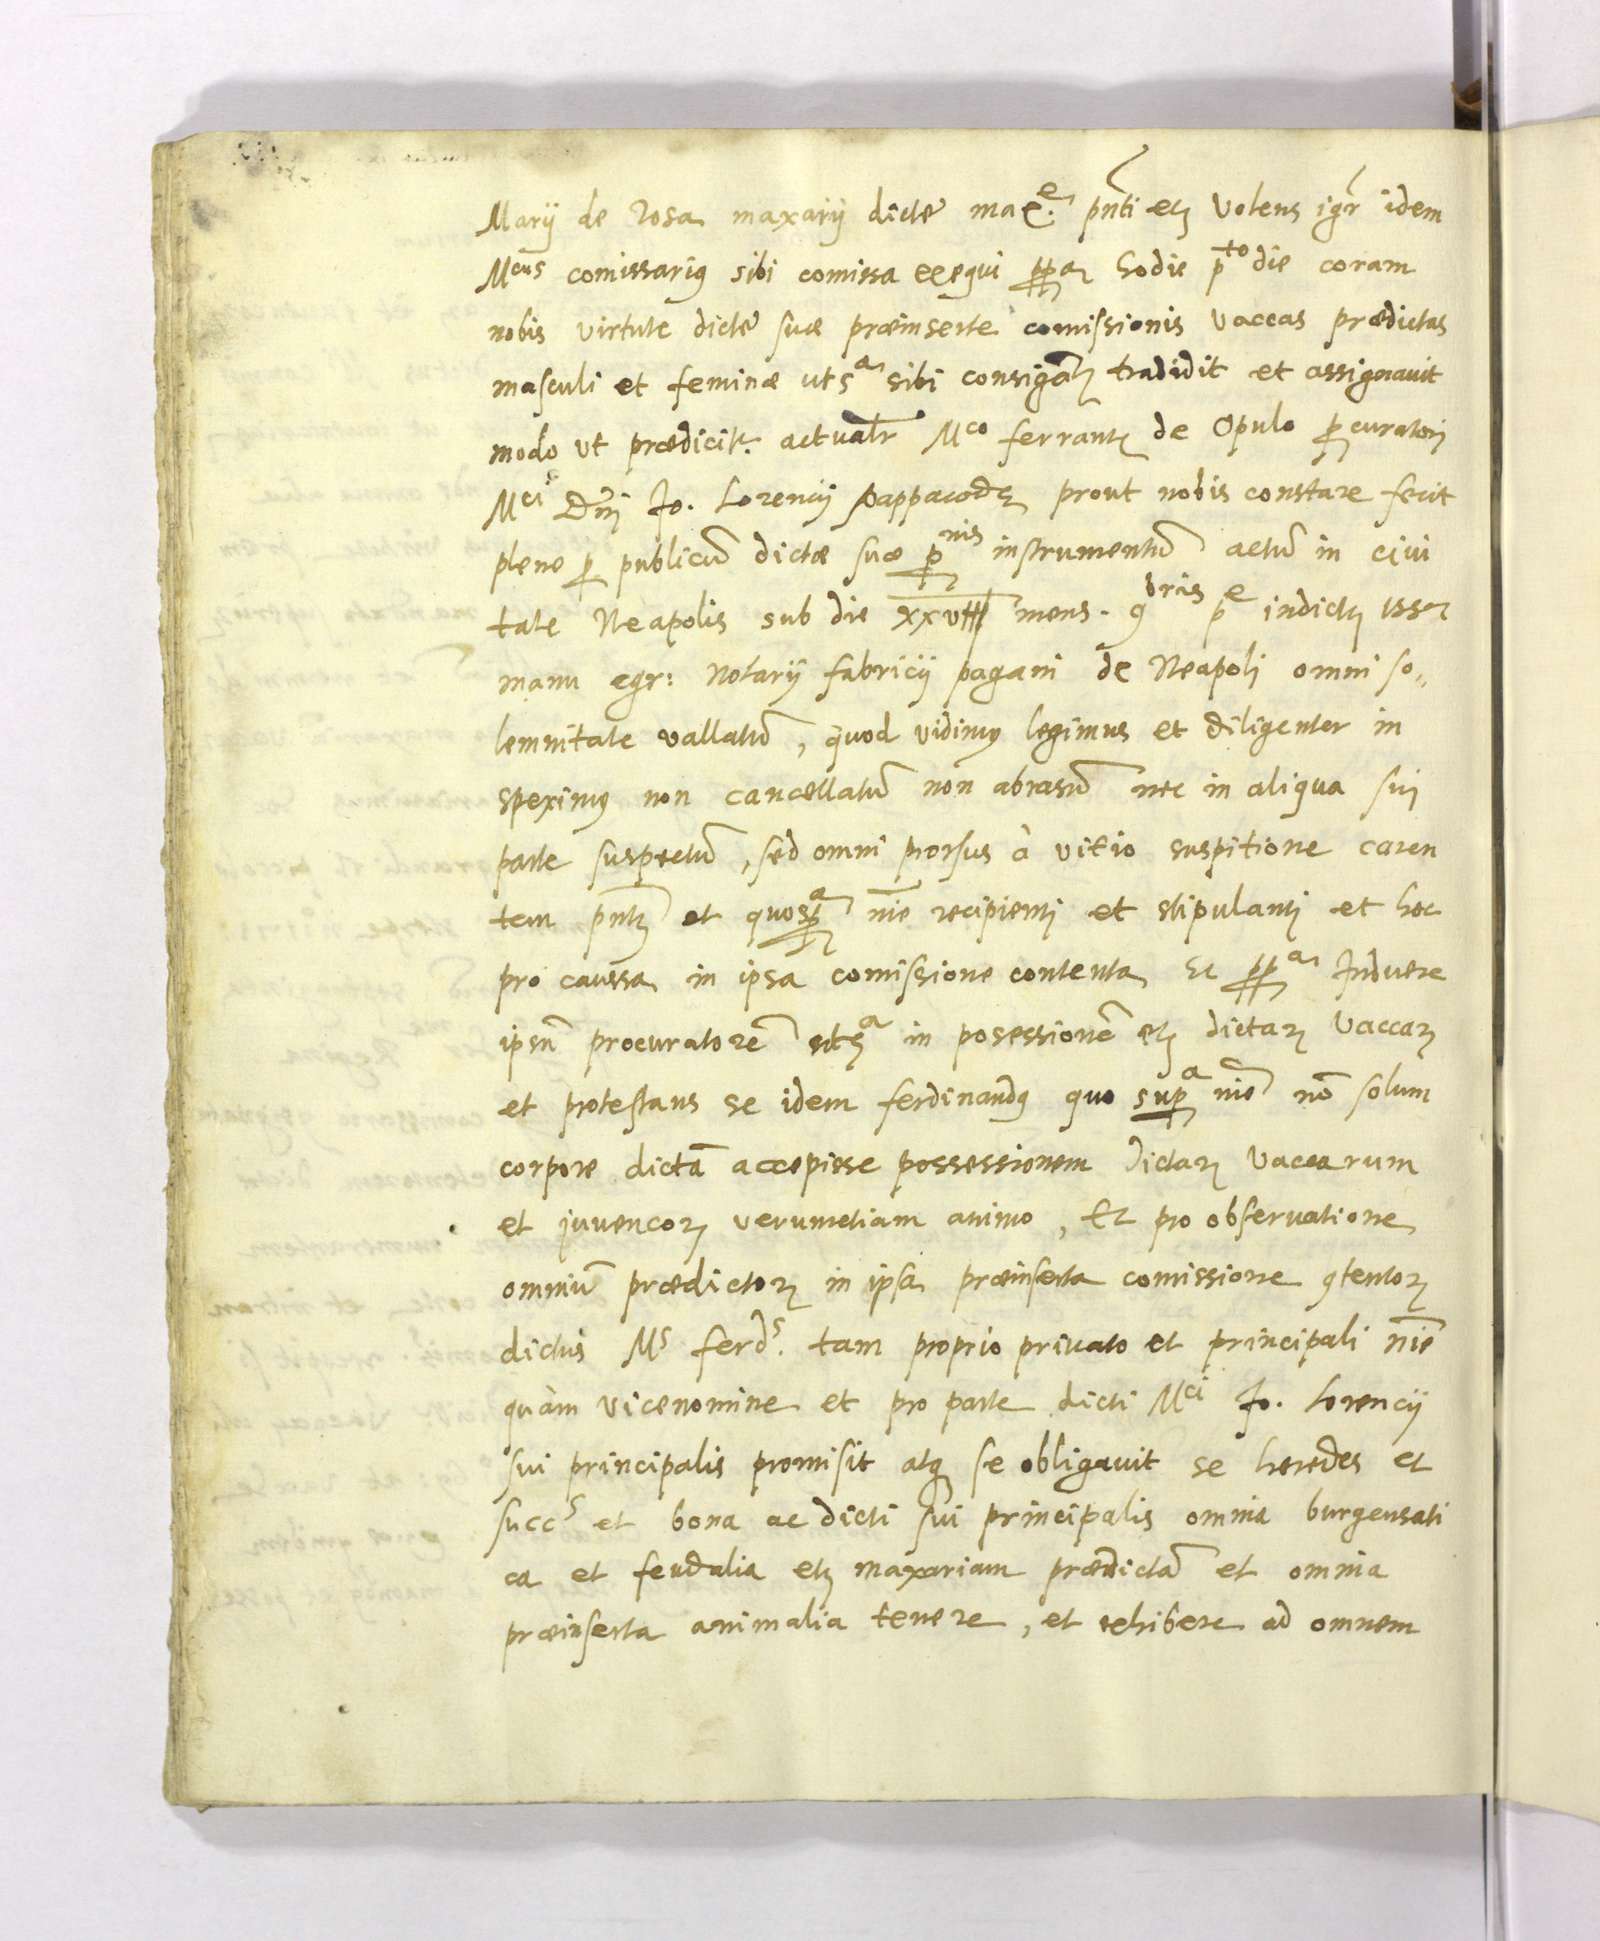 Marij de Rosa maxarij dictæ max.e pñti etz Volens igr̃ idem
Mcus comissariꝯ sibi comissa exequi hodie pto die coram
nobis virtute dictæ suæ præinserte comissionis Vaccas prædictas
masculi et feminæ utsa sibi consig.atz tradidit et assignauit
modo ut prædicitr. actualr̃ Mco ferrantz de Opulo ꝓcuratorj
Mci Dñj Jo. Lorencij pappacodæ prout nobis constare fecit
plene ꝑ publicũ dictæ suæ ꝓnis instrumentũ actũ in ciui
tate Neapolis sub die mens. 9bris pe indictz 155
manu egr: Notarij fabricij pagani de Neapoli omni so„
lemnitate vallatũ, quod vidimꝯ legimus et diligenter in
speximꝯ non cancellatũ non abrasũ nec in aliqua sui
parte suspectũ, sed omni prorsus à vitio suspitione caren
tem pñtz et quo supa nĩe recipientj et stipulantj et hoc
pro caussa in ipsa comissione contenta, Et Induere
ipsũ procuratorẽ utsa in posessionẽ etz dictarꝫ Vaccarꝫ
et protestans se idem ferdinandꝯ quo supa nĩe nõ solum
corpore dictã accepisse possessionem dictarꝫ Vaccarum
et juvencorꝫ verumetiam animo, Et pro obseruatione
omniũ prædictorꝫ in ipsa præinserta comissione ꝯtentorꝫ
dictus Ms ferds. tam proprio priuato et principali nĩe
quàm vicenomine et pro parte dicti Mci Jo. Lorencij
sui principalis promisit atqꝫ se obligauit se heredes et
succs et bona ac dicti sui principalis omnia burgensati
ca et feudalia etz maxariam prædictã et omnia
præinserta animalia tenere, et exhibere ad omnem